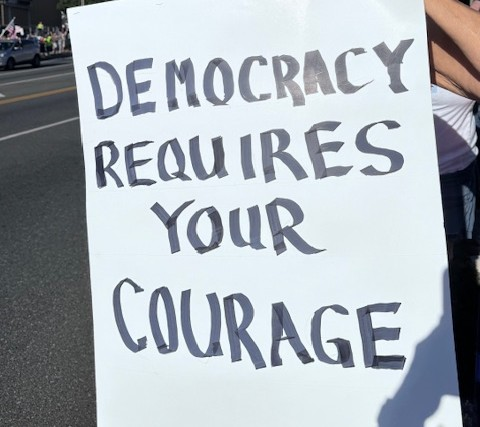 DEMOCRACY
REQUIRES
YOUR
COURAGE